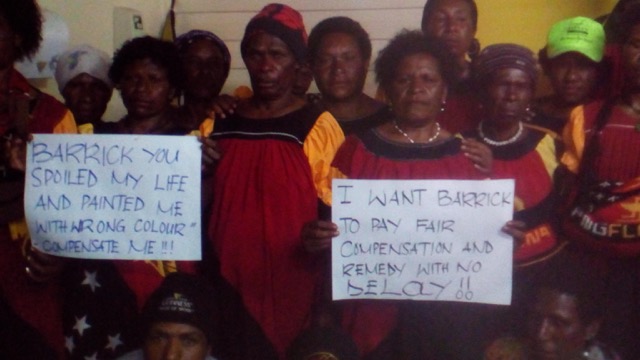 BARRICK YOU
SPOILED MY LIFE
AND PAINTED ME
WITH WRONG COLOUR"
COMPENSATE ME!!!
I WANT BARRICK
TO PAY FAIR
COMPENSATION AND
REMEDY WITH NO
DELAY!!